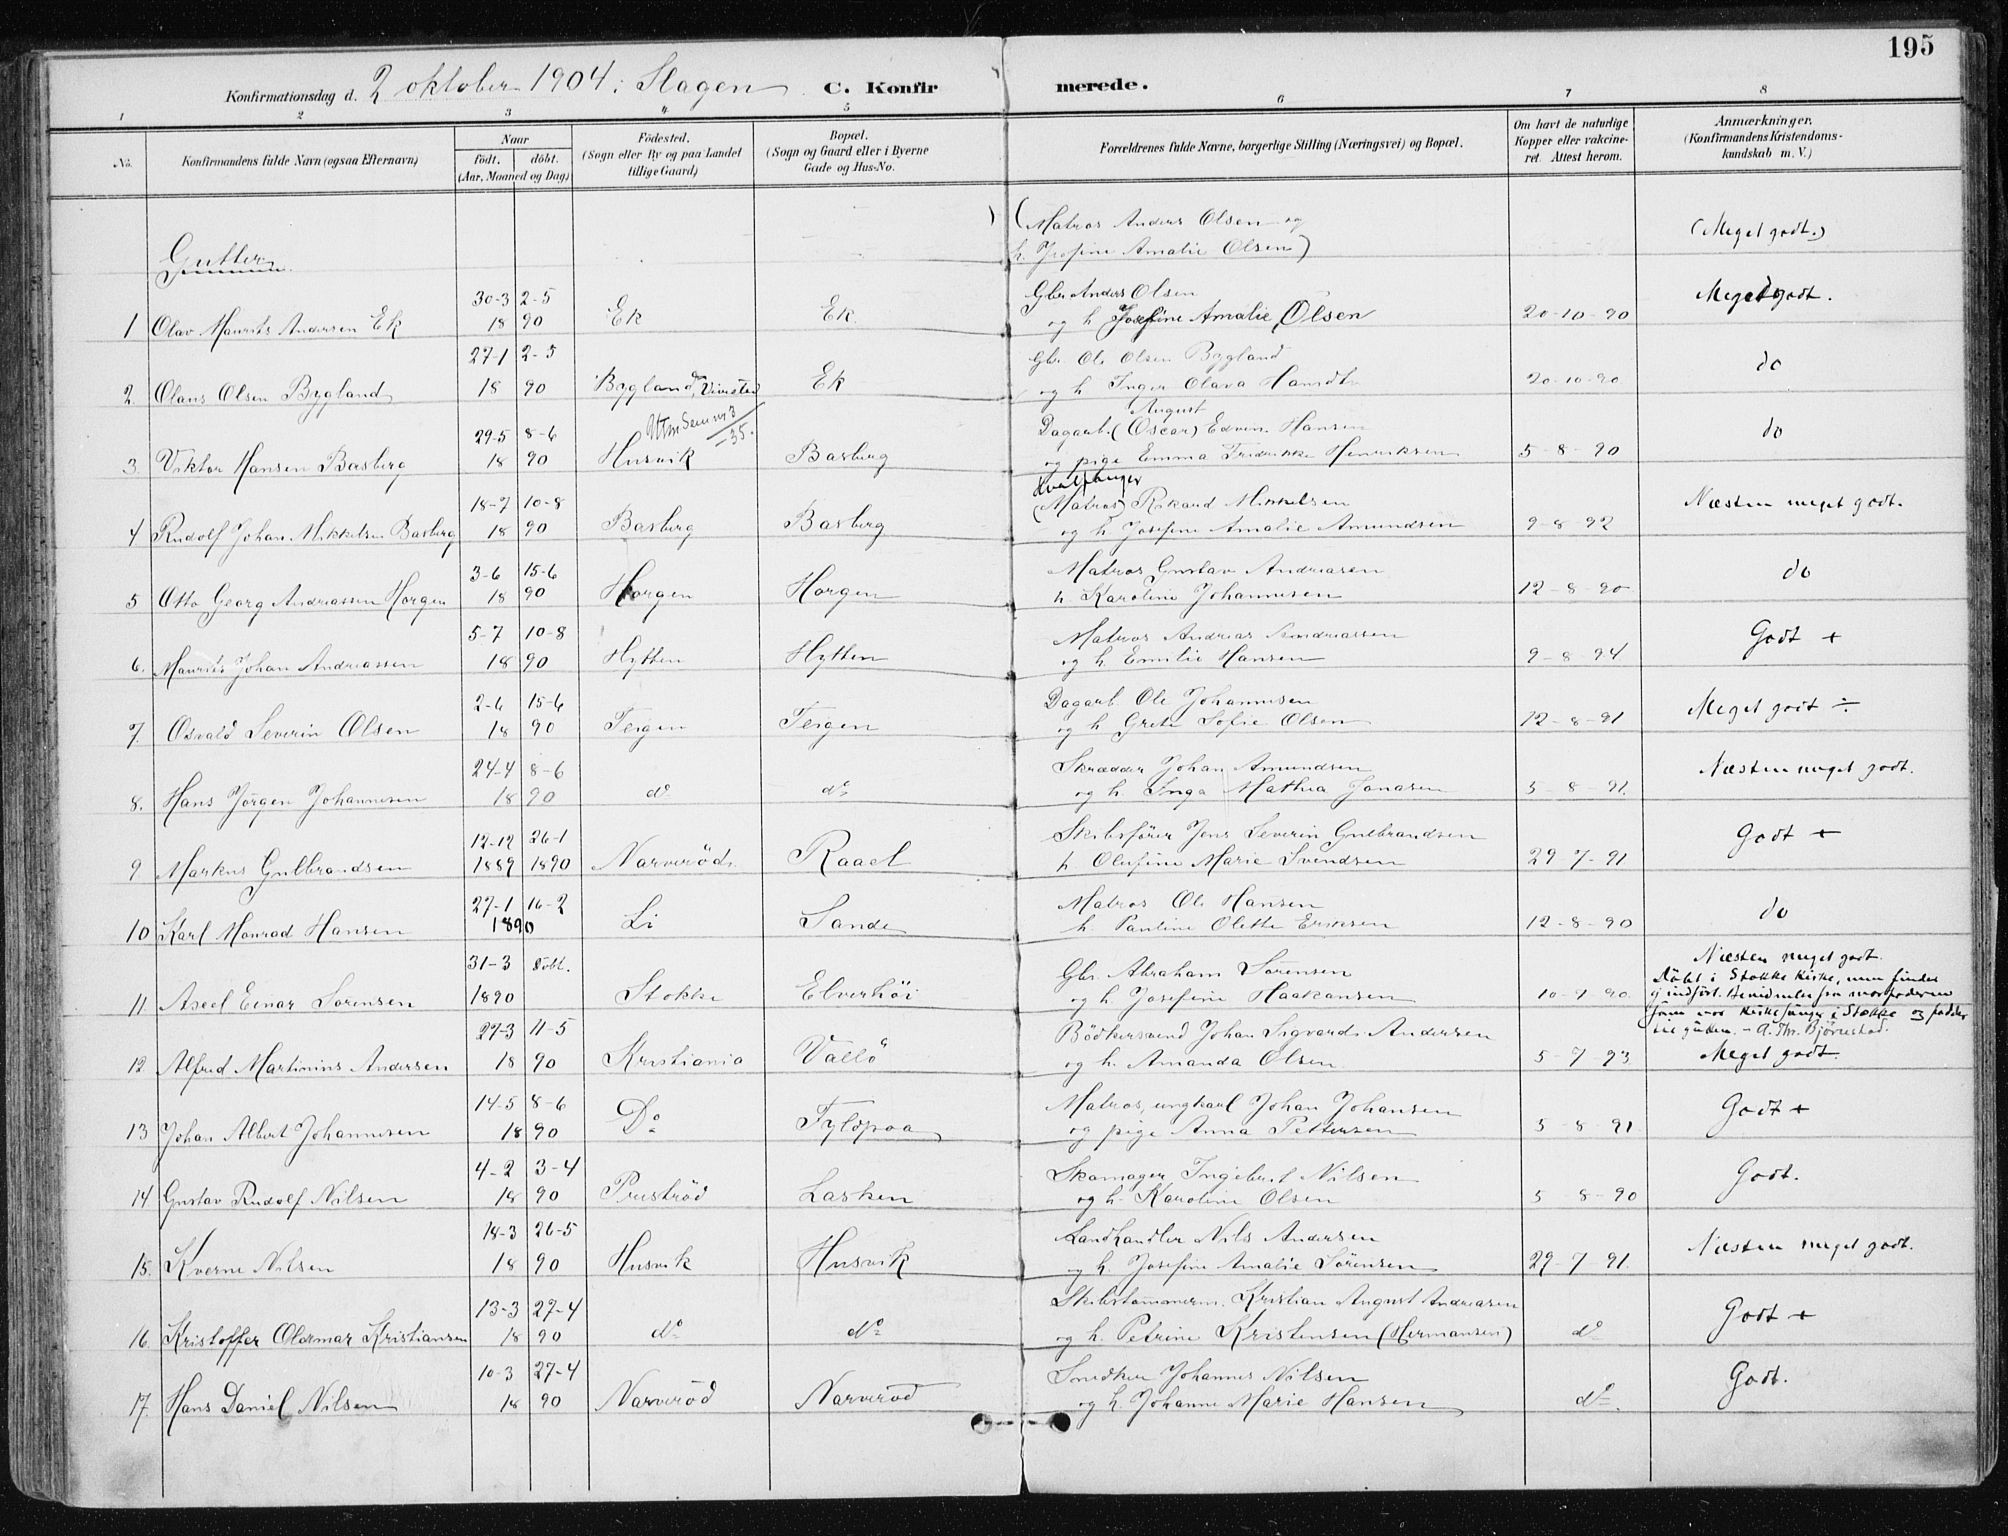 195
Konfirmationsdag d. 2 oktober 1904 i Slagen C. Konfir merede.
1 2 3 4 5 6 7 8
No. Konfirmandens fulde Navn (ogsaa Efternavn) Naar født. døbt. (Aar, Maaned og Dag) Fødested. (Sogn eller By og paa Landet tillige Gaard) Bopæl. (Sogn og Gaard eller i Byerne Gade og Hus-No. Forældrenes fulde Navne, borgerlige Stilling (Næringsvei) og Bopæl. Om havt de naturlige Kopper eller vakcineret. Attest herom. Anmærkninger. (Konfirmandens Kristendomskundskab m. V.)
(Matros Anders Olsen og (Meget godt.)
Gutter h. Josefine Amalie Olsen)
30-3 2-5 Gbr Anders Olsen Meget godt.
1 Olav Maurits Andersen Ek 18 90 Ek Ek og h Josefine Amalie Olsen 20-10-90
27-1 2-5 Gbr. Ole Olsen Bygland do
2. Olaus Olsen Bygland 18 90 Bygland, Ek og h Inger Olava 20-10-90
August
29-5 8-6 -35. Dagarb. (Oscar) Edvin Hansen do
3. Viktor Hansen Basberg 18 90 Husvik Basberg og pige Emma Fredrikke Henriksen 5-8-90
Hvalfanger
18-7 10-8 (Matros) Rikard Mikkelsen Næsten meget godt.
4 Rudolf Johan Mikkelsen Basberg 18 90 Basberg Basberg og h Josefine Amalie Amundsen 9-8-92
3-6 15-6 Matros Gustav Andreasen do
5 Otto Georg Andreassen Horgen 18 90 Horgen Horgen h. Karoline Johannesen 12-8-90
5-7 10-8 Matros Andreas Andreassen Godt +
6. Maurits Johan Andreassen 18 90 Hytten Hytten og h. Emilie Hansen 9-8-94
2-6 15-6 Dagarb. Ole Johannesen Meget godt ÷
7. Osvald Severin Olsen 18 90 Teigen Teigen og h Grete Sofie Olsen 12-8-91
24-4 8-6 Skrædder Johan Amundsen Næsten meget godt.
8. Hans Jørgen Johannesen 18 90 do do og h. Inga Mathea Jonasen 5-8-91.
12-12 26-1 Skibsfører Jens Severin Gulbrandsen Godt +
9 Markus Gulbrandsen 1889 1890 Narverød Raael h Olufine Marie Svendsen 29-7-91
27-1 16-2 Matros Ole Hansen do
10 Karl Monrad Hansen 1890 Li Sande h. Pauline Olette Eriksen 12-8-90
31-3 Døbt. Gbr. Abraham Sørensen Næsten meget godt.
11. Axel Einar Sørensen 1890 Stokke Elverhöi og h. Josefine Haakansen 10-9-90 Døbt i Stokke Kirke, men findes
ej indført. Henvidnelse fra morfaderen
som var Kirkesanger i Stokke og fadder
27-3 11-5 Bødkersvend Johan Sigvard Andersen til gutten. - A. Th. Bjørnestad.
12 Alfred Martinius Andersen 18 90 Kristiania Vallø og h. Amanda Olsen 5-7-93 Meget godt.
14-5 8-6 Matros, ungkarl Johan Johansen Godt +
13 Johan Albert Johannesen 18 90 Do Fyldpaa og pige Anna Pettersen 5-8-91
4-2 3-4 Skomager Ingebret Nilsen Godt.
14 Gustav Rudolf Nilsen 18 90 Presterød Lasken og h. Karoline Olsen 5-8-90
18-3 26-5 Landhandler Nils Andersen Næsten meget godt.
15. Kverne Nilsen 18 90 Husvik Husvik og h. Josefine Amalie Sørensen 29-7-91.
13-3 27-4 Skibstømmerm. Kristian August Andreasen Godt +
16 Kristoffer Oldemar Kristiansen 18 90 do do og h. Petrine Kristensen (Hermansen) do
10-3 27-4 Snedker Johannes Nilsen Godt.
17. Hans Daniel Nilsen 18 90 Narverød Narverød og h. Johanne Marie Hansen do